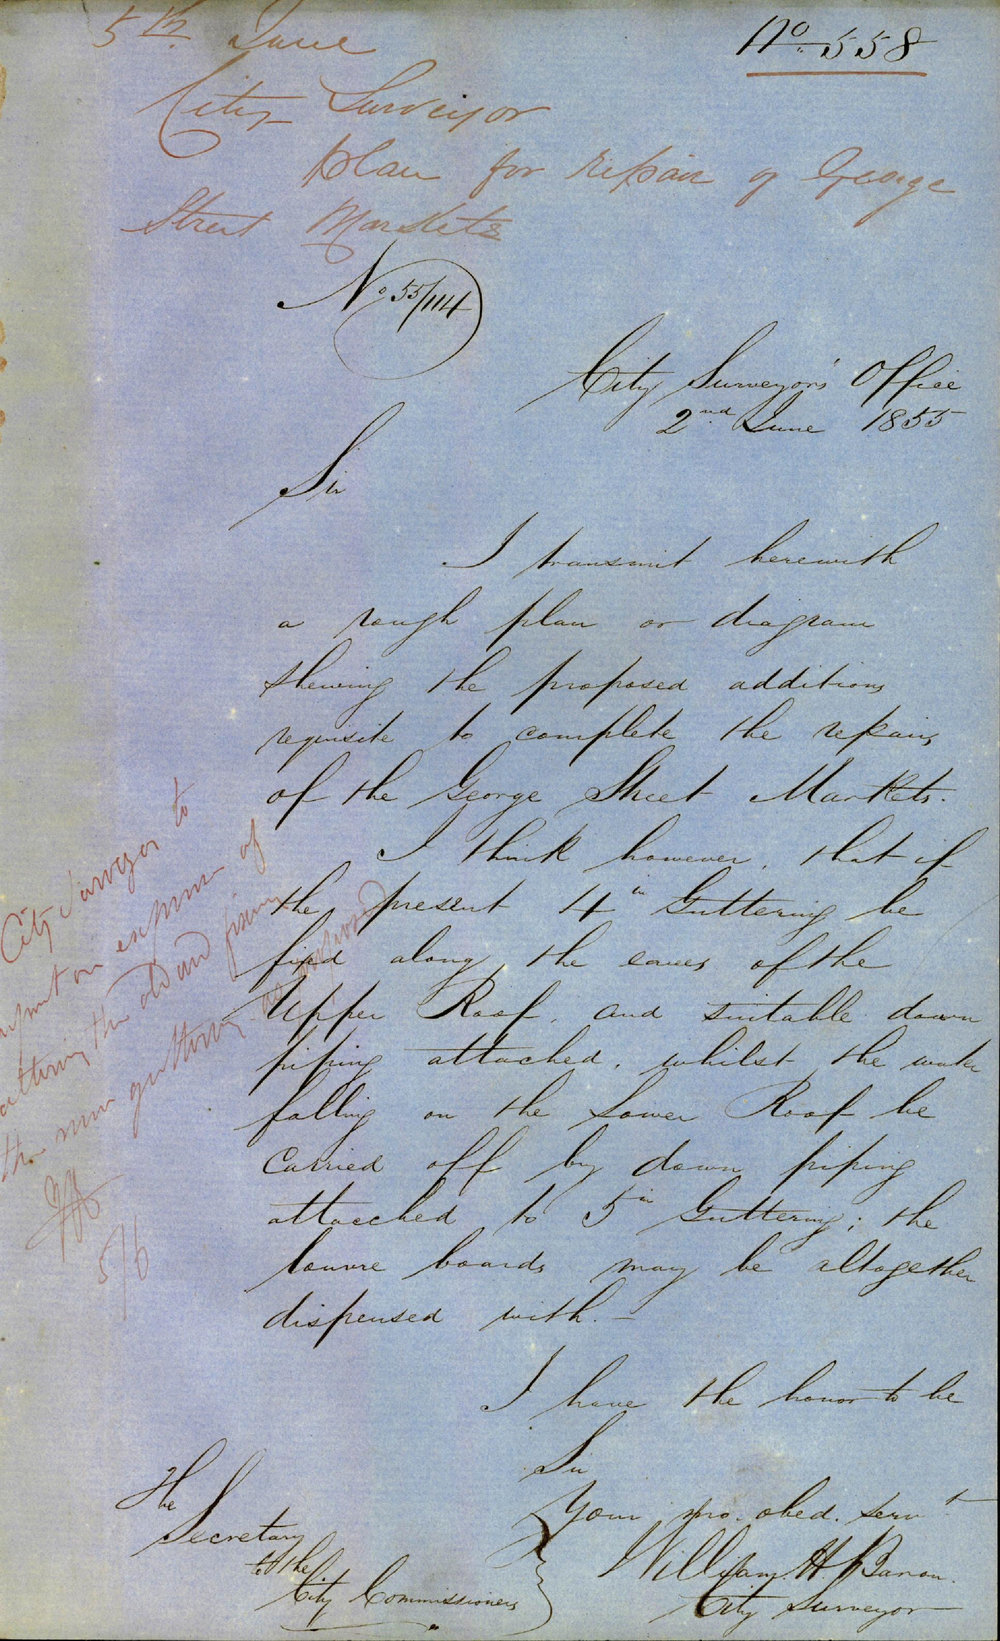 5th June
No. 558
City Surveyor
plan for repair of George
Street Markets
No 55/114
City Surveyor's Office
2nd June 1855
Sir
I transmit herewith
a rough plan or diagram
shewing the proposed additions
requisite to complete the repairs
of the George Street Markets.
I think however, that if
the present 4 in Guttering be
fixed along the eaves of the
Upper Roof, and suitable down
piping attached, whilst the water
falling on the Lower Roof be
carried off by down piping
attacched to 5 in Guttering; the
louvre boards may be altogether
dispensed with. –
I have the honor to be
Sir
Your mo. obed. servt
William H Baron.
City Surveyor
The
Secretary
to the
City Commissioners
City Surveyor to
on expense of
altering the old and fixing
the new guttering as proposed
5/6